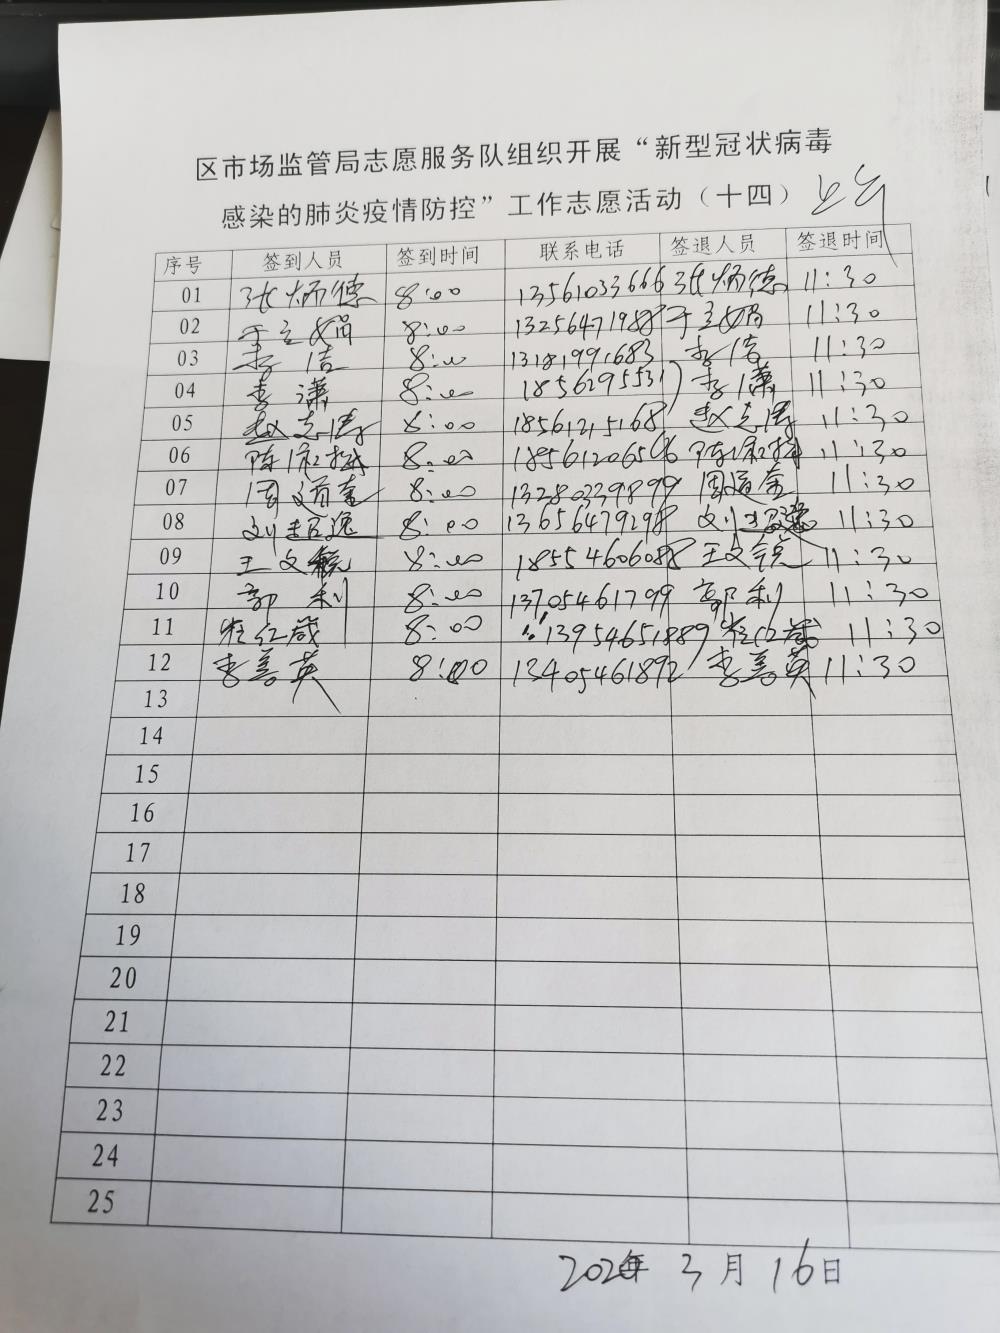 区市场监管局志愿服务队组织开展“新型冠状病毒
感染的肺炎疫情防控”工作志愿活动（十四）上午
序号 签到人员 签到时间 联系电话 签退人员 签退时间
01 张炳德 8:00 13561033666 张炳德 11:30
02 于立娟 8:00 13256471988 于立娟 11:30
03 李洁 8:00 13181991683 李洁 11:30
04 李潇 8:00 1856295531 李潇 11:30
05 赵志涛 8:00 18561215168 赵志涛 11:30
06 陈 8:00 18561206506 陈 11:30
07 周道金 8:00 13280339899 周道金 11:30
08 刘超逸 8:00 13656479298 刘超逸 11:30
09 王文锐 8:00 18554606088 王文锐 11:30
10 郭利 8:00 13705461799 郭利 11:30
11 8:00 13954651889 11:30
12 李善英 8:00 13405461892 李善英 11:30
13
14
15
16
17
18
19
20
21
22
23
24
25
2020年 3月16日